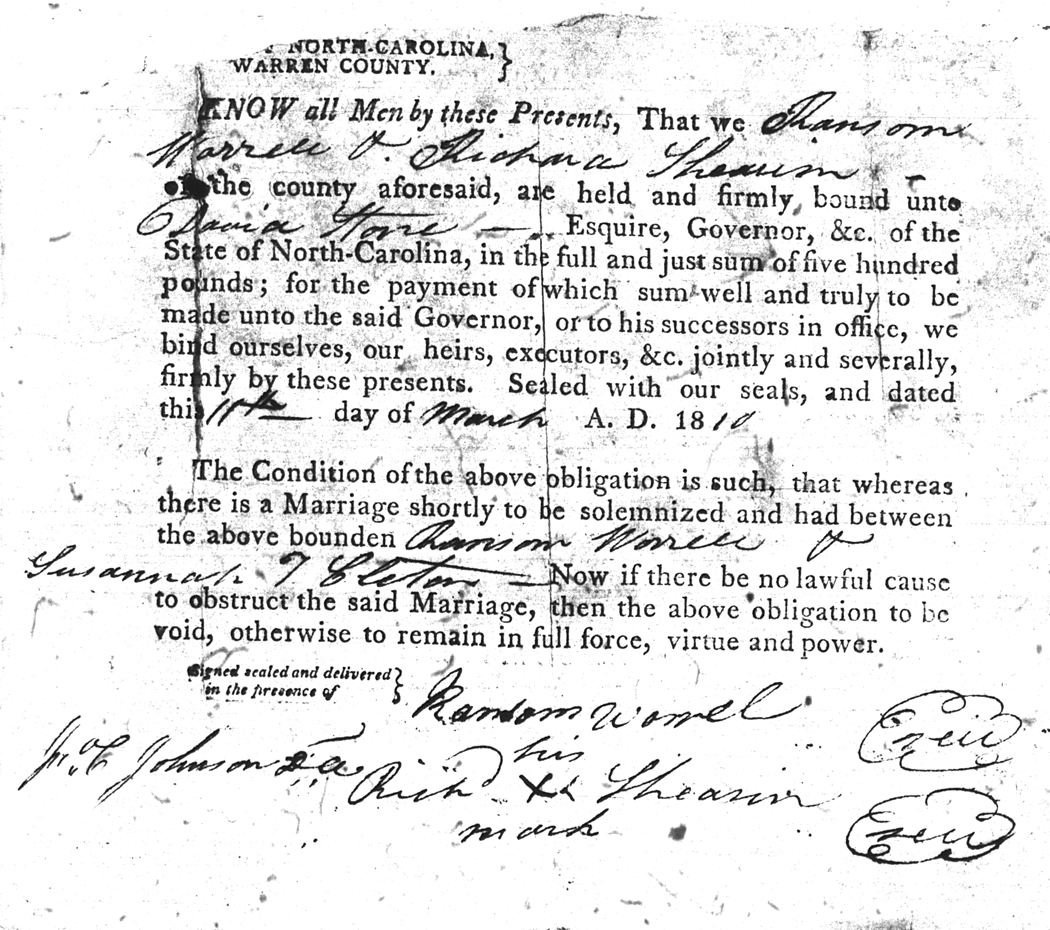 NORTH-CAROLINA,
WARREN COUNTY.
KNOW all Men by these Presents, That we Ransom
Worrell & Richard Shearin
of the county aforesaid, are held and firmly bound unto
David Stone Esquire, Governor, &c. of the
State of North-Carolina, in the full and just sum of five hundred
pounds; for the payment of which sum well and truly to be
made unto the said Governor, or to his successors in office, we
bind ourselves, our heirs, executors, &c. jointly and severally,
firmly by these presents. Sealed with our seals, and dated
this 11th day of March A. D. 1810
The Condition of the above obligation is such, that whereas
there is a Marriage shortly to be solemnized and had between
the above bounden Ransom Worrell &
Susannah T Cleton Now if there be no lawful cause
to obstruct the said Marriage, then the above obligation to be
void, otherwise to remain in full force, virtue and power.
Signed sealed and delivered
in the presence of
Ransom Worrel
his
Johnson
Richd X Shearin
mark